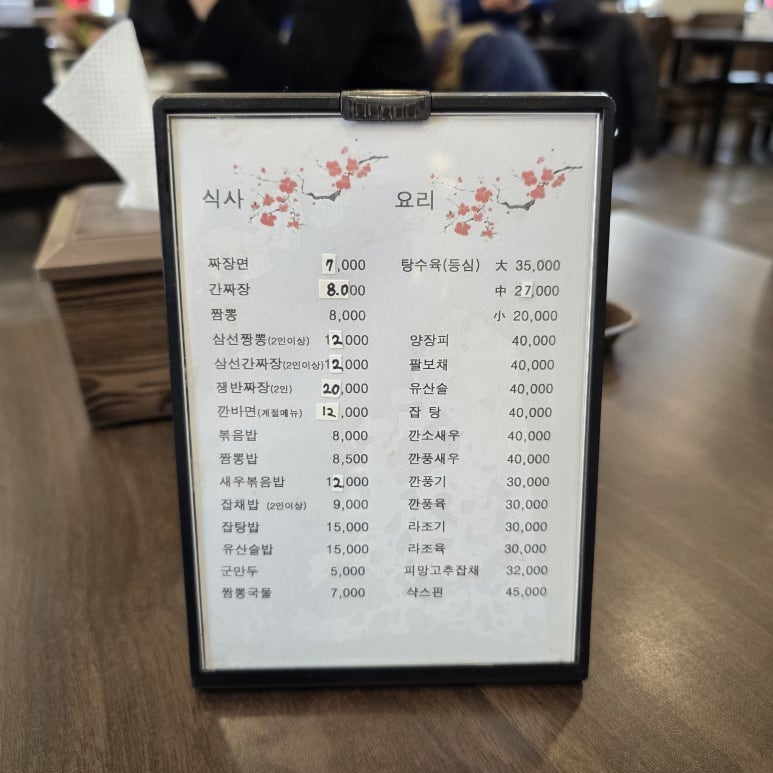 식사
짜장면 7,000
간짜장 8.000
짬뽕 8,000
삼선짱뽕(2인이상) 12,000
삼선간짜장(2인이상) 12,000
쟁반짜장(2인) 20,000
깐바면(계절메뉴) 12,000
볶음밥 8,000
짬뽕밥 8,500
새우볶음밥 12,000
잡채밥 (2인이상) 9,000
잡탕밥 15,000
유산슬밥 15,000
군만두 5,000
짬뽕국물 7,000
요리
탕수육(등심) 大 35,000
中 27,000
小 20,000
양장피 40,000
팔보채 40,000
유산슬 40,000
잡 탕 40,000
깐소새우 40,000
깐풍새우 40,000
깐풍기 30,000
깐풍육 30,000
라조기 30,000
라조육 30,000
피망고추잡채 32,000
샥스핀 45,000